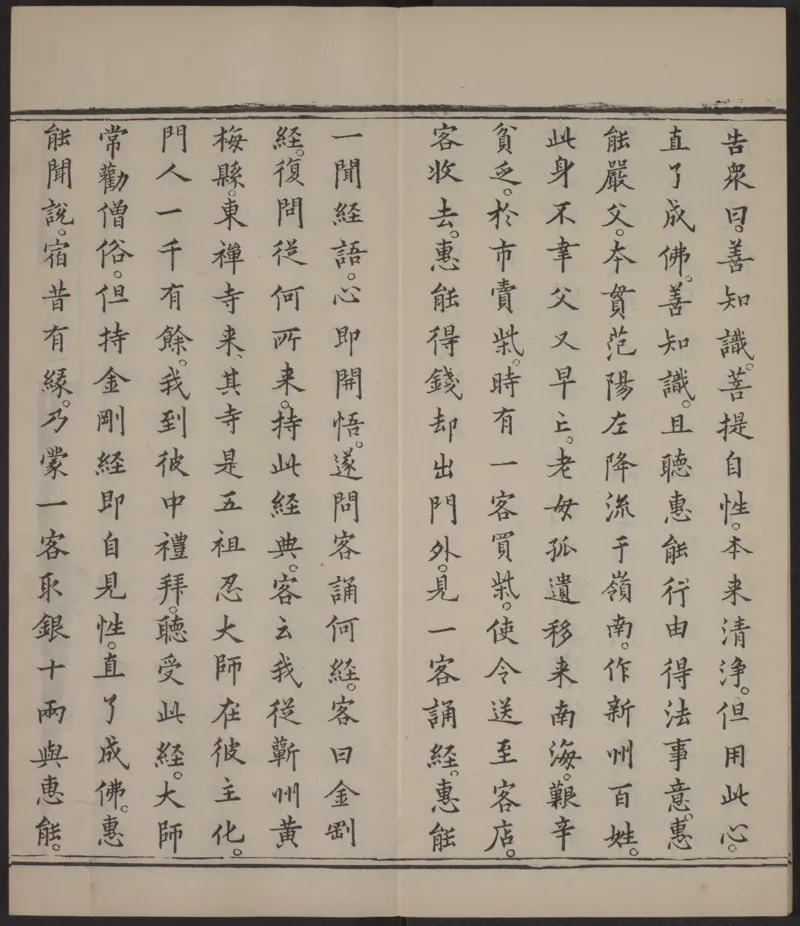 告衆曰。善知識。菩提自性。本来清淨。但用此心。
直了成佛。善知識。且聽惠能行由得法事意。惠
能嚴父。本貫范陽左降流于嶺南。作新州百姓。
此身不幸父又早亡。老母孤遺移来南海。艱辛
貧乏。於市賣柴。時有一客買柴。使令送至客店。
客收去。惠能得錢却出門外。見一客誦経。惠能
一聞経語。心即開悟。遂問客誦何経。客曰金剛
経。復問從何所来。持此経典。客云我從蘄州黃
梅縣。東禪寺来、其寺是五祖忍大師在彼主化。
門人一千有餘。我到彼中禮拜。聽受此経。大師
常勸僧俗。但持金剛経即自見性。直了成佛。惠
能聞說。宿昔有緣。乃蒙一客取銀十兩與惠能。